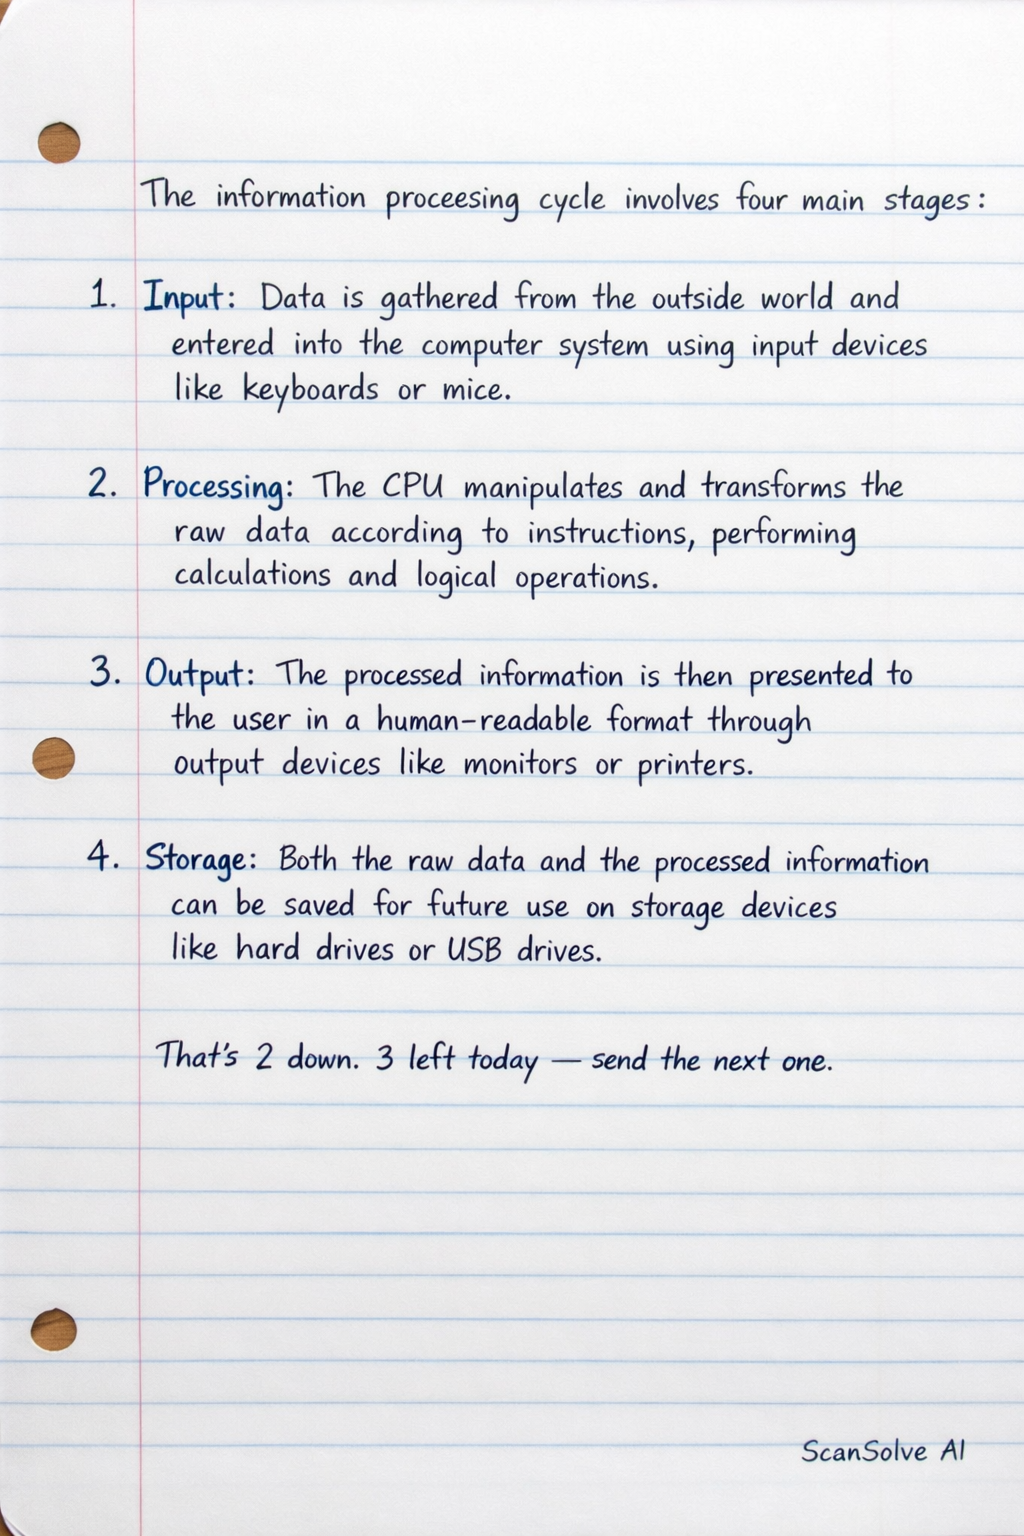 The information proceesing cycle involves four main stages:
1. Input: Data is gathered from the outside world and
entered into the computer system using input devices
like keyboards or mice.
2. Processing: The CPU manipulates and transforms the
raw data according to instructions, performing
calculations and logical operations.
3. Output: The processed information is then presented to
the user in a human-readable format through
output devices like monitors or printers.
4. Storage: Both the raw data and the processed information
can be saved for future use on storage devices
like hard drives or USB drives.
That's 2 down. 3 left today — send the next one.
ScanSolve AI